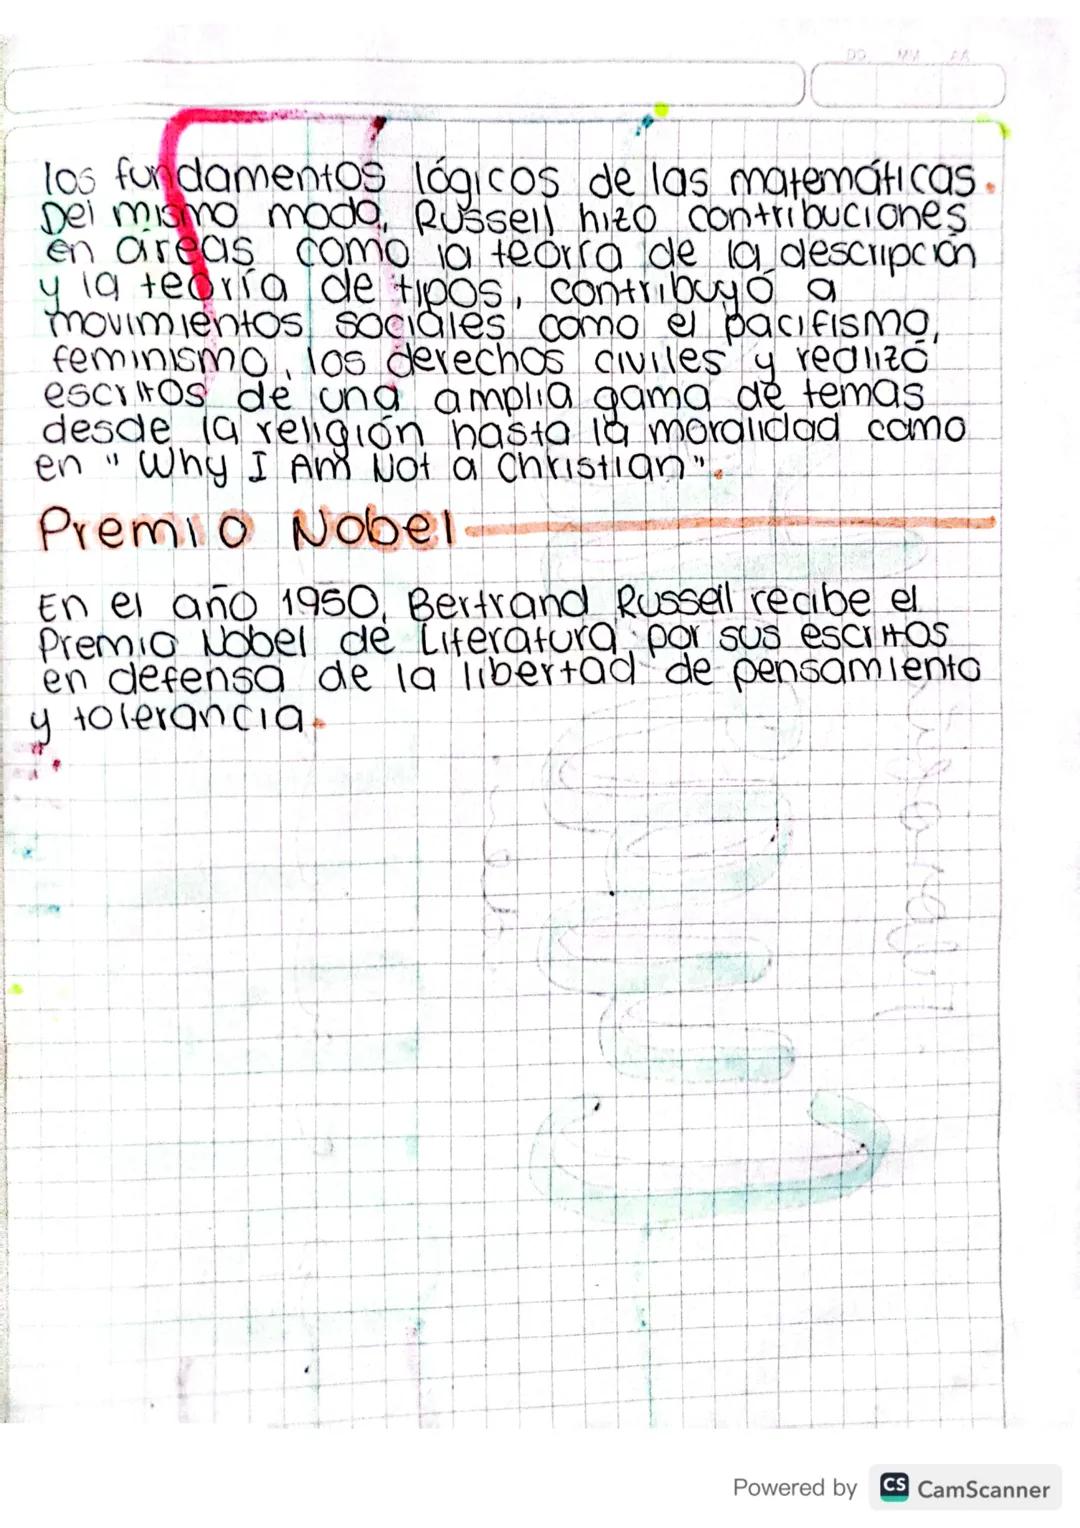 DD MM AA
los fundamentos lógicos de las matemáticas.
Del mismo modo, Russell hizo contribuciones
en áreas como la teoría de la descripción
y la teoría de tipos, contribuyó a
movimientos sociales como el pacifismo,
feminismo, los derechos civiles y realizó
escritos de una amplia gama de temas
desde la religión hasta la moralidad como
en "Why I Am Not a Christian".
Premio Nobel
En el año 1950, Bertrand Russell recibe el
Premio Nobel de Literatura por sus escritos
en defensa de la libertad de pensamiento
y tolerancia.
Powered by CS CamScanner